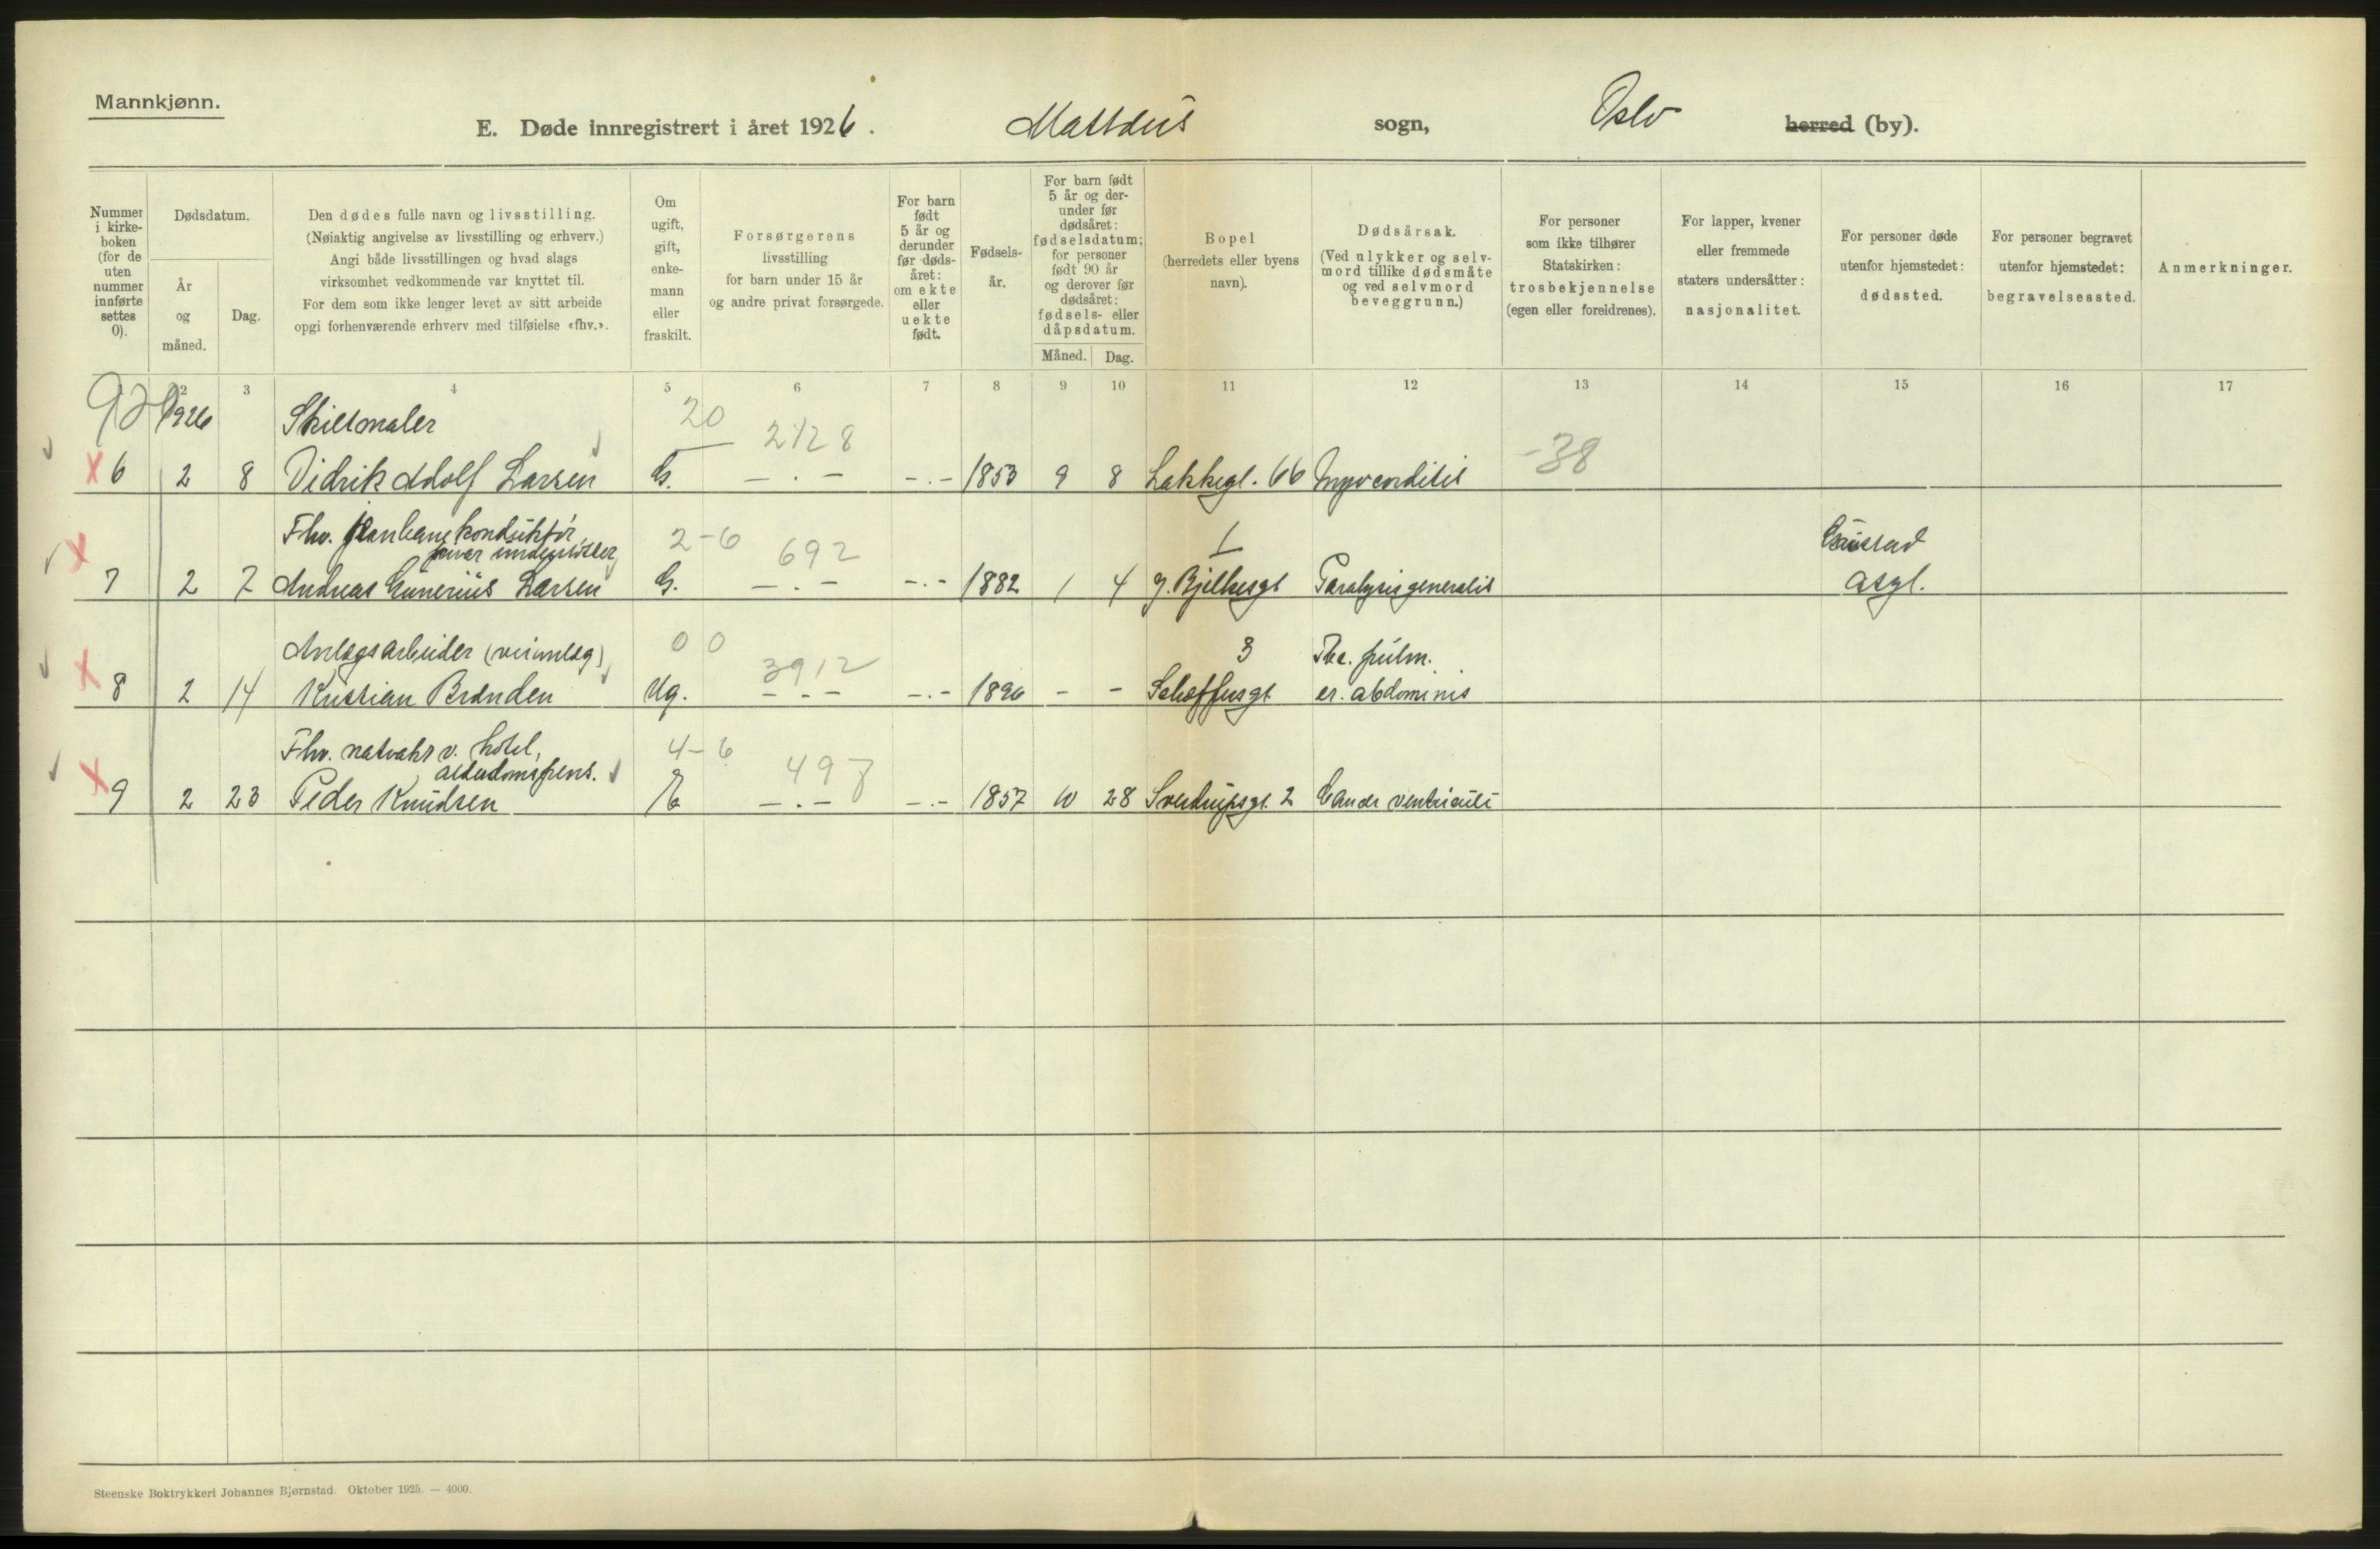 Mannkjønn.
E. Døde innregistrert i året 1926.
Mattæus sogn,
Oslo herred (by).
Nummer i kirkeboken (for de uten nummer innførte settes 0).
Dødsdatum.
År og måned.
Dag.
Den dødes fulle navn og livsstilling.
(Nøiaktig angivelse av livsstilling og erhverv.)
Angi både livsstillingen og hvad slags
virksomhet vedkommende var knyttet til.
For dem som ikke lenger levet av sitt arbeide
opgi forhenværende erhverv med tilføielse «fhv.».
Om ugift, gift, enkemann eller fraskilt.
Forsørgerens
livsstilling
for barn under 15 år
og andre privat forsørgede.
For barn født 5 år og derunder før dødsåret: om ekte eller uekte født.
Fødselsår.
For barn født 5 år og derunder før dødsåret: fødselsdatum; for personer født 90 år og derover før dødsåret: fødsels- eller dåpsdatum.
Måned. Dag.
Bopel
(herredets eller byens
navn).
Dødsårsak.
(Ved ulykker og selvmord tillike dødsmåte og ved selvmord beveggrunn.)
For personer
som ikke tilhører
Statskirken:
trosbekjennelse
(egen eller foreldrenes).
For lapper, kvener
eller fremmede
staters undersåtter:
nasjonalitet.
For personer døde
utenfor hjemstedet:
dødssted.
For personer begravet
utenfor hjemstedet:
begravelsessted.
Anmerkninger.
2 3 4 5 6 7 8 9 10 11 12 13 14 15 16 17
1926 Skiltmaler 20 2428
x 6 2 8 Didrik Adolf Larsen G. - . - -.- 1853 9 8 Lakkegt. 66 Myocarditis -38
Fhv. jernbanekonduktør, 2-6 692 1 Gaustad
privat understøttet
x 7 2 7 Andreas Gunerius Larsen G. - . - -.- 1882 1 4 J. Bjelkesgt Paralysis generalis asyl.
Anlegsarbeider (veianleg) 00 3912 3 Tbc. pulm.
x 8 2 14 Kristian Brænden Ug. - . - -.- 1896 - - Schøffusgt et. abdominis
Fhv. natvakt v. hotel, 4-6 497
alderdomspens.
x 9 2 23 Peder Knudsen E - . - -.- 1857 10 28 Sverdrupsgt. 2 Cancer ventriculi
Steenske Boktrykkeri Johannes Bjørnstad. Oktober 1925. — 4000.